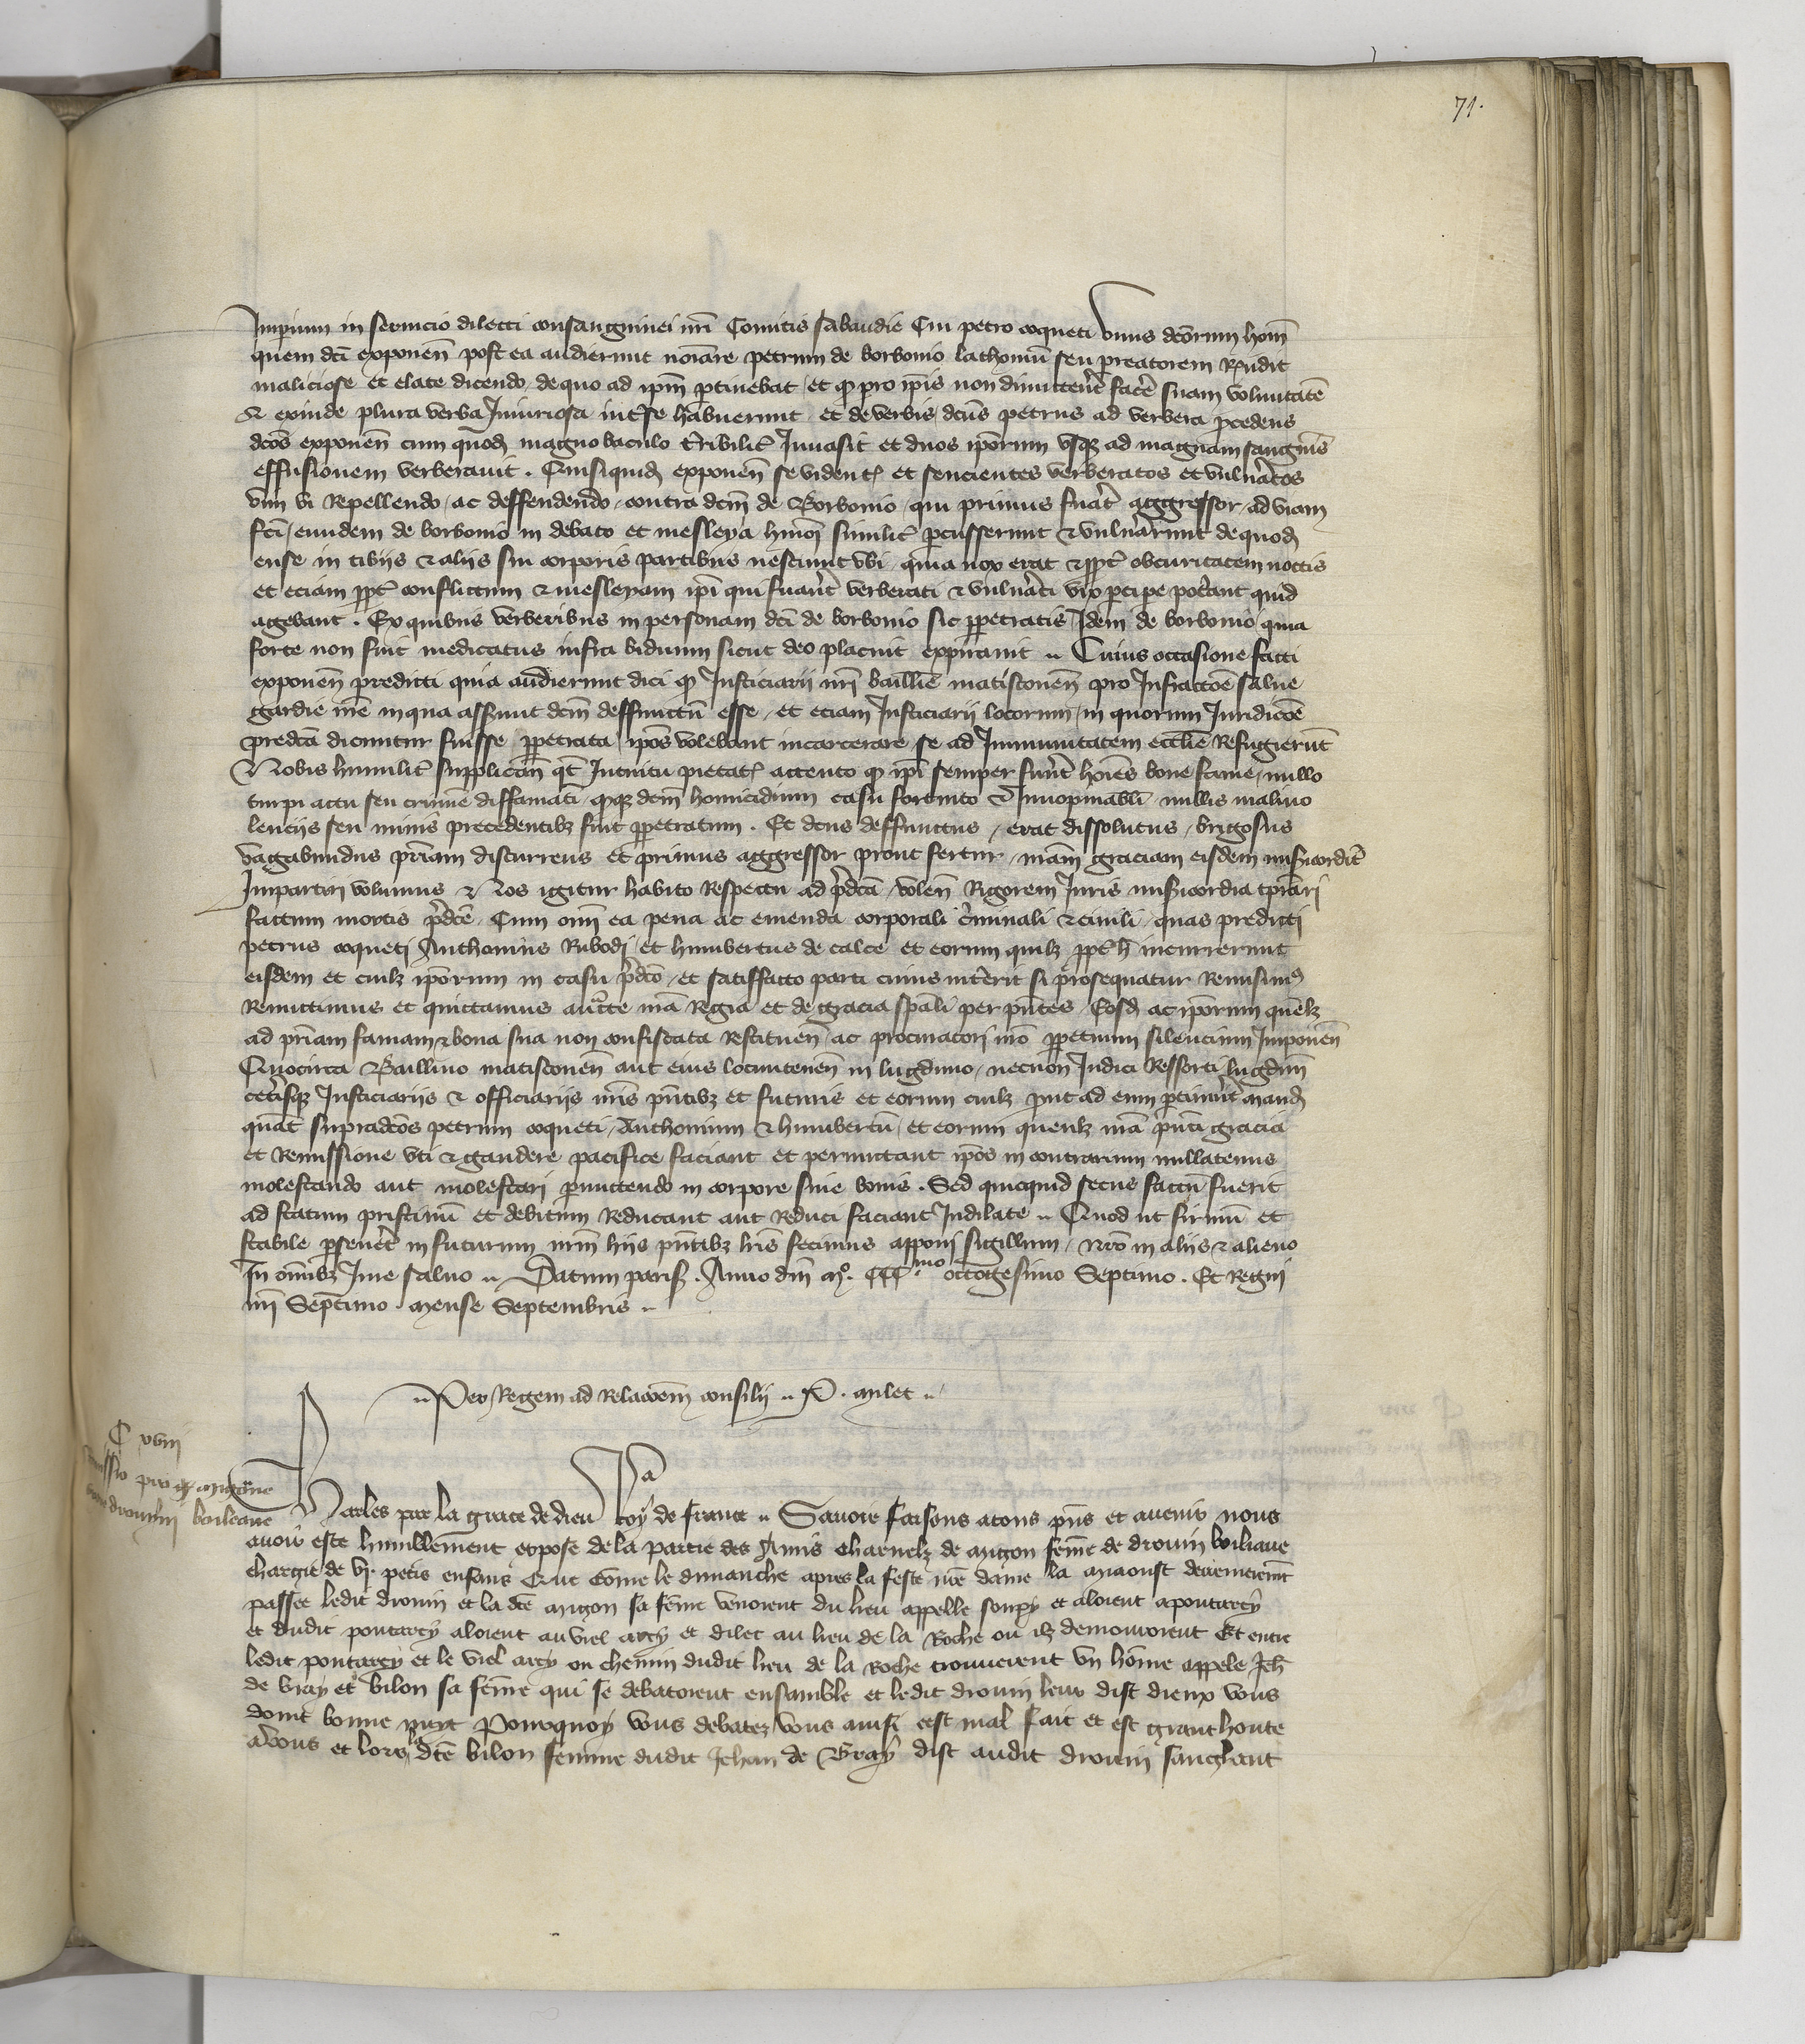 71.
Imperium in servicio dilecti consanguinei nrī Comitis sabaudie Cui petro coqueti unus dcōrum hoīm
quem dcī exponen̄ post ea audierunt noīare petrum de borbonio lathomū seu preatorem Rn̄dit
maliciose et elate dicendo de quo ad ipm̄ ptinebat et qͥ pro ipīs non dimittet facē suam voluntatē
& exinde plura verba Iniuriosa int̄ se habuerunt et de verbis dcūs petrus ad verbera pcedens
dcōs exponen̄ cum quodꝫ magno baculo tribilit̄ Invasit et duos ipōrum usqꝫ ad magnam sanguīs
effusionem verberavit . Quisiquidꝫ exponen̄ se videntꝭ et sencientes verberatos et vulnatos
vim vi Repellendo ac deffendendo contra dcm̄ de Borbonio qui primus fuat̄ agggressor ad viam
fcī eundem de borbonio in debato et mesleya hmōi similit̄ pcusserunt & vulnarunt de quodꝫ
ense in tibiis & aliis sui corporis partibus nesciunt ubi quia nox erat & ppt̄ obcuritatem noctis
et eciam ppt̄ conflictum & mesleyam ipī qui fuant̄ verberati & vulnati vix pcipe potant quid
agebant . Ex quibus verberibus in personam dcī de borbonio sic ppetratis Idem de borbonio quia
forte non fuit medicatus infra biduum sicut deo placuit expiravit .. Cuius occasione facti
exponen̄ predicti quia audierunt dici qͥ Iusticiarii nrī baillie matisconen̄ pro Infractōe salve
gardie nrē in qua assunt dcm̄ deffunctū esse et eciam Iusticiarii locorum in quorum Iuridicōe
predcā dicuntur fuisse ppetrata ipōs volebant incarcerare se ad Immunitatem ecclīe Refugierūt
Nobis humilit̄ supplican̄ qt̄ Intuitu pietatꝭ attento qͥ ipī semper funt̄ hoīes bone fame nullo
turpi actu seu crimīe diffamati qͥqꝫ dcm̄ homicidium casu fortuito & Innopinablī nullis malivo
lenciis seu minis precedentibꝫ fuit ppetratum . Et dcūs deffunctus erat dissolutus brigosus
vagabundus pr̄iam discurrens et primus aggressor prout fertur nr̄am graciam eisdem misicordit̄
Impartiri velimus & Nos igitur habito Respectu ad p̄dcā volen̄ Rigorem Iuris misicordia tpiari
factum mortis p̄dcē Cum om̄i ea pena ac emenda corporali c̄minali & civili quas predicti
petrus coqueti Anthonius Ribodi et humbertus de calce et eorum quilꝫ ppt̄ h̄ incurrerunt
eisdem et cuilꝫ ipōrum in casu p̄dcō et satisffacto parti cuius intēit si prosequatur Remisimꝰ
Remittimus et quictamus auct̄te nr̄a Regia et de gracia spāli per pn̄tes Eosdꝫ ac ipōrum quēlꝫ
ad pr̄iam famam & bona sua non confiscata Restituen̄ ac procuratori nr̄o ppetuum silencium Imponen̄
Quocirca Baillivo matisconen̄ aut eius locumtenen̄ in lugduno necnon Iudici Ressorti lugdun̄
cetisqꝫ Iusticiariis & officiariis nrīs pn̄tibꝫ et futuris et eorum cuilꝫ put ad eum ptinuit̄ mandꝫ
quat̄ supradcōs petrum coqueti Anthonium & humbertū et eorum quenlꝫ nr̄a pn̄ti gracia
et Remissione uti & gaudere pacifice faciant et permittant ipōs in contrarium nullatenus
molestando aut molestari pmittendo in corpore sive bonis . Sed quicquid secus factū fuerit
ad statum pristinū et debitum Reducant aut Reduci faciant Indilate .. Quod ut firmū et
stabile pseveet̄ in futurum nrm̄ hiis pn̄tibꝫ lrīs fecimus apponi sigillum nrō in aliis & alieno
In omībꝫ Iure salvo .. Datum parisꝭ . Anno dnī mº. CCCmo octogesimo Septimo . Et Regni
nrī Septimo . mense Septembris ..
.. Per Regem ad Relacōem consilii .. P . mlet ..
C xviii
Remissio pro migone
drouyn boileaue
Karles par la grace de dieu Roy de france .. Savoir faisons a tous pn̄s et avenir nous
avoir este humblement expose de la partie des Amis charnelz de migon fēme de drouin boiliaue
chargie de vj. petis enfans Que cōme le dimanche apres la feste nrē dame la miaoust derrenierem̄t
passee ledit drouin et la dtē migon sa fēme venoient du lieu appelle soupy et aloient a pontarcy
et dudit pontarcy aloient au viel arcy et dilec au lieu de la Roche ou ilz demouroient Et entre
ledit pontarcy et le viel arcy ou chemin dudit lieu de la Roche trouverent un hōme appele Jeh̄
de bray et bilon sa fēme qui se debatoient ensamble et ledit drouin leur dist dieux vous
doint bonne nuyt Pourquoy vous debatez vous ainsi cest mal fait et est grant honte
a vous et lors la dtē bilon femme dudit Jehan de Bray dist audit drouin sanglant